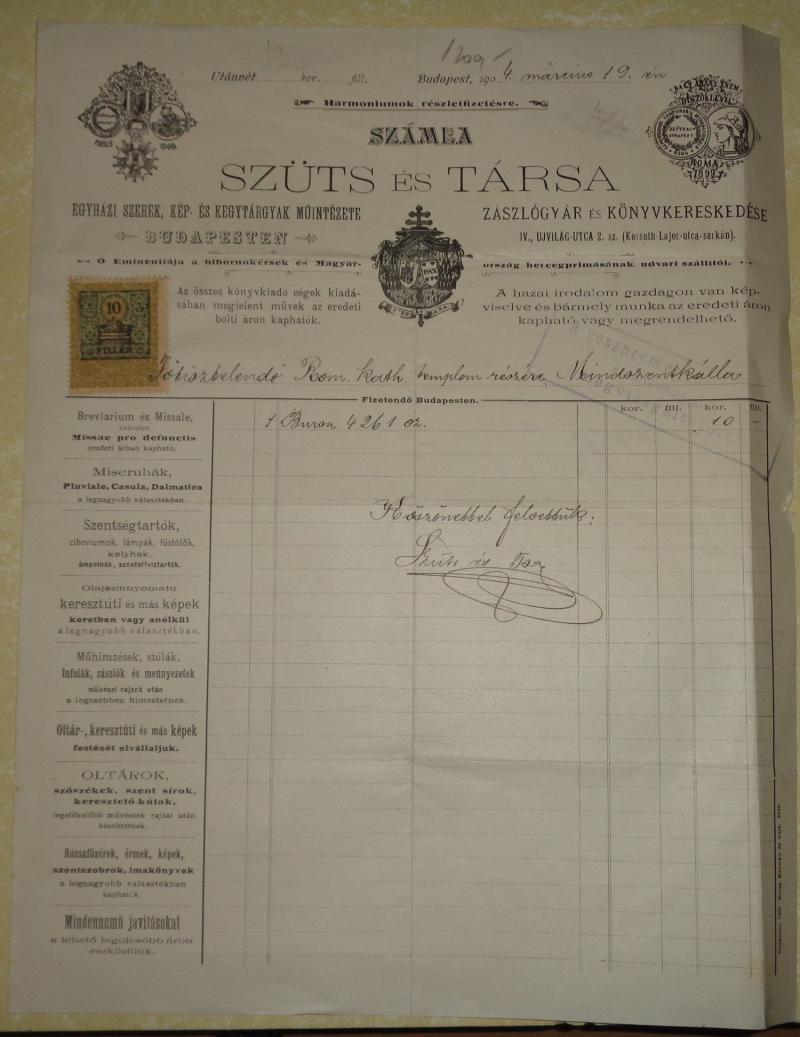 Utánvét kor. fill. Budapest, 1904. március 19. én
Harmoniumok részletfizetésre.
PÁRIS 1900.
NAGY ARANY ÉREM
DÍSZOKLEVÉL
RÓMA
1899
SZÁMLA
SZÜTS ÉS TÁRSA
EGYHÁZI SZEREK, KÉP- ÉS KEGYTÁRGYAK MŰINTÉZETE
BUDAPESTEN
ZÁSZLÓGYÁR ÉS KÖNYVKERESKEDÉSE
IV., UJVILÁG-UTCA 2. sz. (Kossuth-Lajos-utca-sarkán).
Ő Eminentiája a bibornokérsek és Magyar-
ország hercegprimásának udvari szállítói.
PAX
Az összes könyvkiadó cégek kiadá-
sában megjelent művek az eredeti
bolti áron kaphatók.
A hazai irodalom gazdagon van kép-
viselve és bármely munka az eredeti áron
kapható vagy megrendelhető.
10
FILLÉR
Főtisztelendő Rom. kath. templom részére Mindszentkálla
Fizetendő Budapesten.
kor. fill. kor. fill.
1 4261 02. 10 –
Köszönettel felvettük:
Szüts és Tsa
Breviarium és Missale,
valamint
Missae pro defunctis
eredeti árban kapható.
Miseruhák,
Pluviale, Casula, Dalmatica
a legnagyobb választékban.
Szentségtartók,
ciboriumok, lámpák, füstölők,
kelyhek,
ámpolnák, szenteltvíztartók.
Olajszinnyomatu
keresztúti és más képek
keretben vagy anélkül
a legnagyobb választékban.
Műhimzések, stólák,
Infulák, zászlók és mennyezetek
művészi rajzok után
a legszebben hímeztetnek.
Oltár-, keresztúti és más képek
festését elvállaljuk.
OLTÁROK,
szószékek, szent sírok,
keresztelő-kútak,
legelőkelőbb művészek rajzai után
készíttetnek.
Rózsafüzérek, érmek, képek,
szentszobrok, imakönyvek
a legnagyobb választékban
kaphatók.
Mindennemű javításokat
a lehető legolcsóbb áron
eszközlünk.